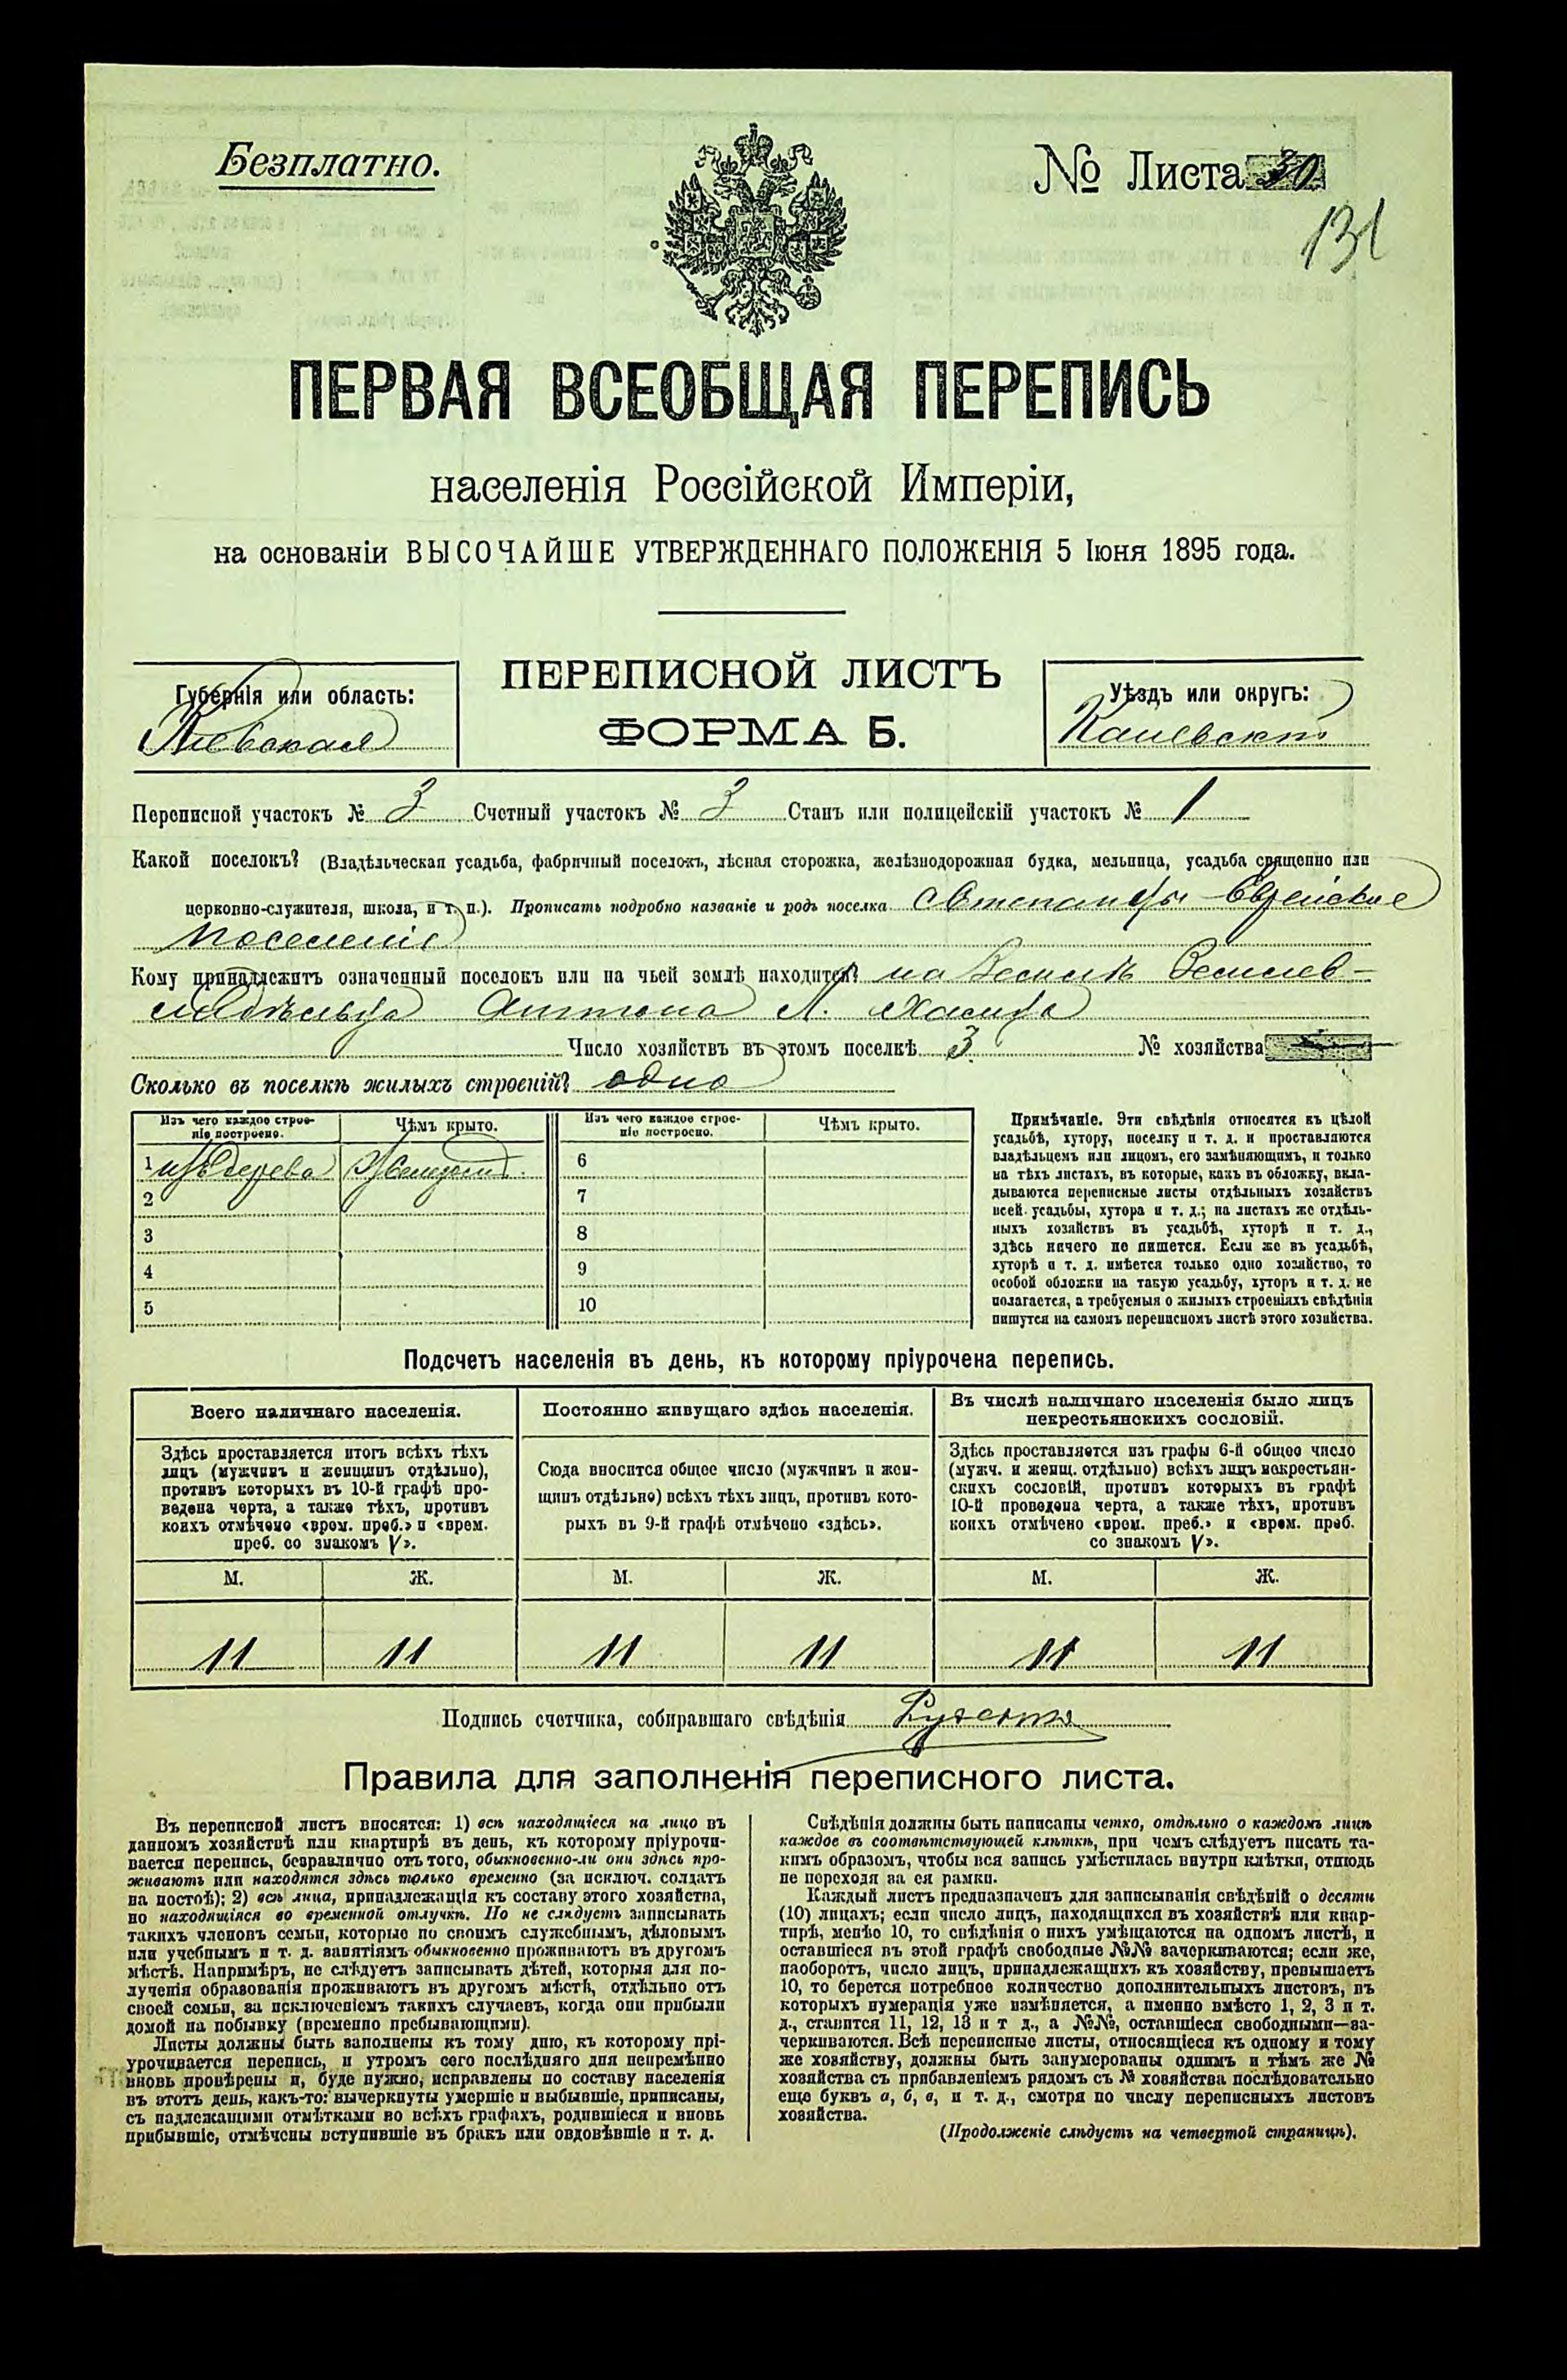 Безплатно.
№ Листа 30
131
ПЕРВАЯ ВСЕОБЩАЯ ПЕРЕПИСЬ
населенія Россійской Имперіи,
на основаніи ВЫСОЧАЙШЕ УТВЕРЖДЕННАГО ПОЛОЖЕНІЯ 5 Іюня 1895 года.
Губернія или область:
Кіевская
ПЕРЕПИСНОЙ ЛИСТЪ
ФОРМА Б.
Уѣздъ или округъ:
Каневскій
Переписной участокъ № 3 Счетный участокъ № 3 Станъ или полицейскій участокъ № 1
Какой поселокъ? (Владѣльческая усадьба, фабричный поселокъ, лѣсная сторожка, желѣзнодорожная будка, мельница, усадьба священно или
церковно-служителя, школа, и т. п.). Прописать подробно названіе и родъ поселка Еврейское
поселеніе
Кому принадлежитъ означенный поселокъ или на чьей землѣ находится? на землѣ землев-
ладѣльца Антона Л.
Число хозяйствъ въ этомъ поселкѣ 3 № хозяйства
Сколько въ поселкѣ жилыхъ строеній? одно
Изъ чего каждое строе-
ніе построено.
Чѣмъ крыто.
Изъ чего каждое строе-
ніе построено.
Чѣмъ крыто.
1 изъ дерева
6
2
7
3
8
4
9
5
10
Примѣчаніе. Эти свѣдѣнія относятся къ цѣлой
усадьбѣ, хутору, поселку и т. д. и проставляются
владѣльцемъ или лицомъ, его замѣняющимъ, и только
на тѣхъ листахъ, въ которые, какъ въ обложку, вкла-
дываются переписные листы отдѣльныхъ хозяйствъ
всей усадьбы, хутора и т. д.; на листахъ же отдѣль-
ныхъ хозяйствъ въ усадьбѣ, хуторѣ и т. д.,
здѣсь ничего не пишется. Если же въ усадьбѣ,
хуторѣ и т. д. имѣется только одно хозяйство, то
особой обложки на такую усадьбу, хуторъ и т. д. не
полагается, а требуемыя о жилыхъ строеніяхъ свѣдѣнія
пишутся на самомъ переписномъ листѣ этого хозяйства.
Подсчетъ населенія въ день, къ которому пріурочена перепись.
Всего наличнаго населенія.
Здѣсь проставляется итогъ всѣхъ тѣхъ
лицъ (мужчинъ и женщинъ отдѣльно),
противъ которыхъ въ 10-й графѣ про-
ведена черта, а также тѣхъ, противъ
коихъ отмѣчено «врем. преб.» и «врем.
преб. со знакомъ V».
Постоянно живущаго здѣсь населенія.
Сюда вносится общее число (мужчинъ и жен-
щинъ отдѣльно) всѣхъ тѣхъ лицъ, противъ кото-
рыхъ въ 9-й графѣ отмѣчено «здѣсь».
Въ числѣ наличнаго населенія было лицъ
некрестьянскихъ сословій.
Здѣсь проставляется изъ графы 6-й общее число
(мужч. и женщ. отдѣльно) всѣхъ лицъ некрестьян-
скихъ сословій, противъ которыхъ въ графѣ
10-й проведена черта, а также тѣхъ, противъ
коихъ отмѣчено «врем. преб.» и «врем. преб.
со знакомъ V».
М. Ж. М. Ж. М. Ж.
11 11 11 11 11 11
Подпись счетчика, собиравшаго свѣдѣнія
Правила для заполненія переписного листа.
Въ переписной листъ вносятся: 1) всѣ находящіеся на лицо въ
данномъ хозяйствѣ или квартирѣ въ день, къ которому пріурочи-
вается перепись, безразлично отъ того, обыкновенно-ли они здѣсь про-
живаютъ или находятся здѣсь только временно (за исключ. солдатъ
на постоѣ); 2) всѣ лица, принадлежащія къ составу этого хозяйства,
но находящіяся во временной отлучкѣ. Но не слѣдуетъ записывать
такихъ членовъ семьи, которые по своимъ служебнымъ, дѣловымъ
или учебнымъ и т. д. занятіямъ обыкновенно проживаютъ въ другомъ
мѣстѣ. Напримѣръ, не слѣдуетъ записывать дѣтей, которыя для по-
лученія образованія проживаютъ въ другомъ мѣстѣ, отдѣльно отъ
своей семьи, за исключеніемъ такихъ случаевъ, когда они прибыли
домой на побывку (временно пребывающими).
Листы должны быть заполнены къ тому дню, къ которому прі-
урочивается перепись, и утромъ сего послѣдняго дня непремѣнно
вновь провѣрены и, буде нужно, исправлены по составу населенія
въ этотъ день, какъ-то: вычеркнуты умершіе и выбывшіе, приписаны,
съ надлежащими отмѣтками во всѣхъ графахъ, родившіеся и вновь
прибывшіе, отмѣчены вступившіе въ бракъ или овдовѣвшіе и т. д.
Свѣдѣнія должны быть написаны четко, отдѣльно о каждомъ лицѣ
каждое въ соотвѣтствующей клѣткѣ, при чемъ слѣдуетъ писать та-
кимъ образомъ, чтобы вся запись умѣстилась внутри клѣтки, отнюдь
не переходя за ея рамки.
Каждый листъ предназначенъ для записыванія свѣдѣній о десяти
(10) лицахъ; если число лицъ, находящихся въ хозяйствѣ или квар-
тирѣ, менѣе 10, то свѣдѣнія о нихъ умѣщаются на одномъ листѣ, и
оставшіеся въ этой графѣ свободные №№ зачеркиваются; если же,
наоборотъ, число лицъ, принадлежащихъ къ хозяйству, превышаетъ
10, то берется потребное количество дополнительныхъ листовъ, въ
которыхъ нумерація уже измѣняется, а именно вмѣсто 1, 2, 3 и т.
д., ставится 11, 12, 13 и т д., а №№, оставшіеся свободными—за-
черкиваются. Всѣ переписные листы, относящіеся къ одному и тому
же хозяйству, должны быть занумерованы однимъ и тѣмъ же №
хозяйства съ прибавленіемъ рядомъ съ № хозяйства послѣдовательно
еще буквъ а, б, в, и т. д., смотря по числу переписныхъ листовъ
хозяйства.
(Продолженіе слѣдуетъ на четвертой страницѣ).